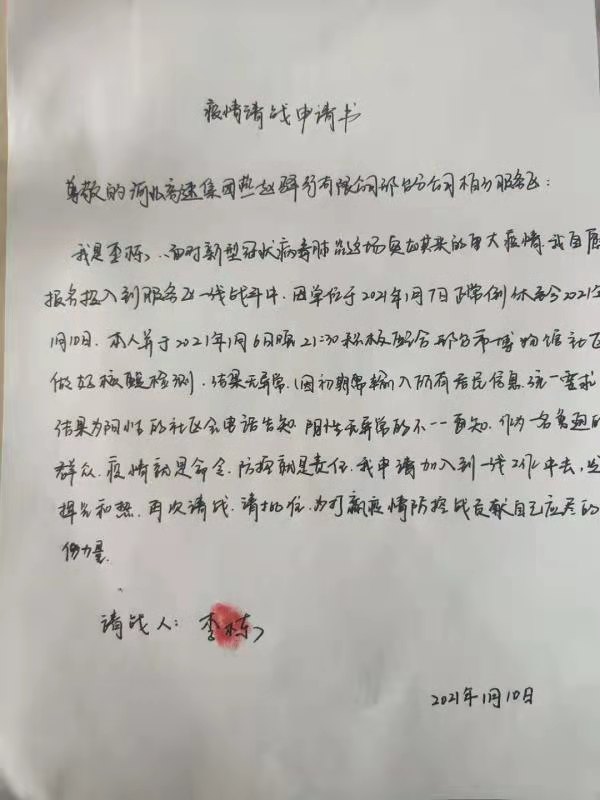 疫情请战申请书
尊敬的河北高速集团燕赵驿行有限公司邢台分公司柏乡服务区:
我是李栋,面对新型冠状病毒肺炎这场突如其来的重大疫情.我自愿
报名投入到服务区一线战斗中.因单位于2021年1月7日正常例休至今2021年
1月10日.本人并于2021年1月6日晚21:30积极配合邢台市博物馆社区
做好核酸检测.结果无异常.(因初期需输入所有居民信息.统一要求.
结果为阳性的社区会电话告知 阴性无异常的不一一再知.作为一名普通的
群众.疫情就是命令.防控就是责任.我申请加入到一线工作中去,发
挥光和热.再次请战.请批准.为打赢疫情防控战贡献自己应尽的
份力量.
请战人:李栋
2021年1月10日